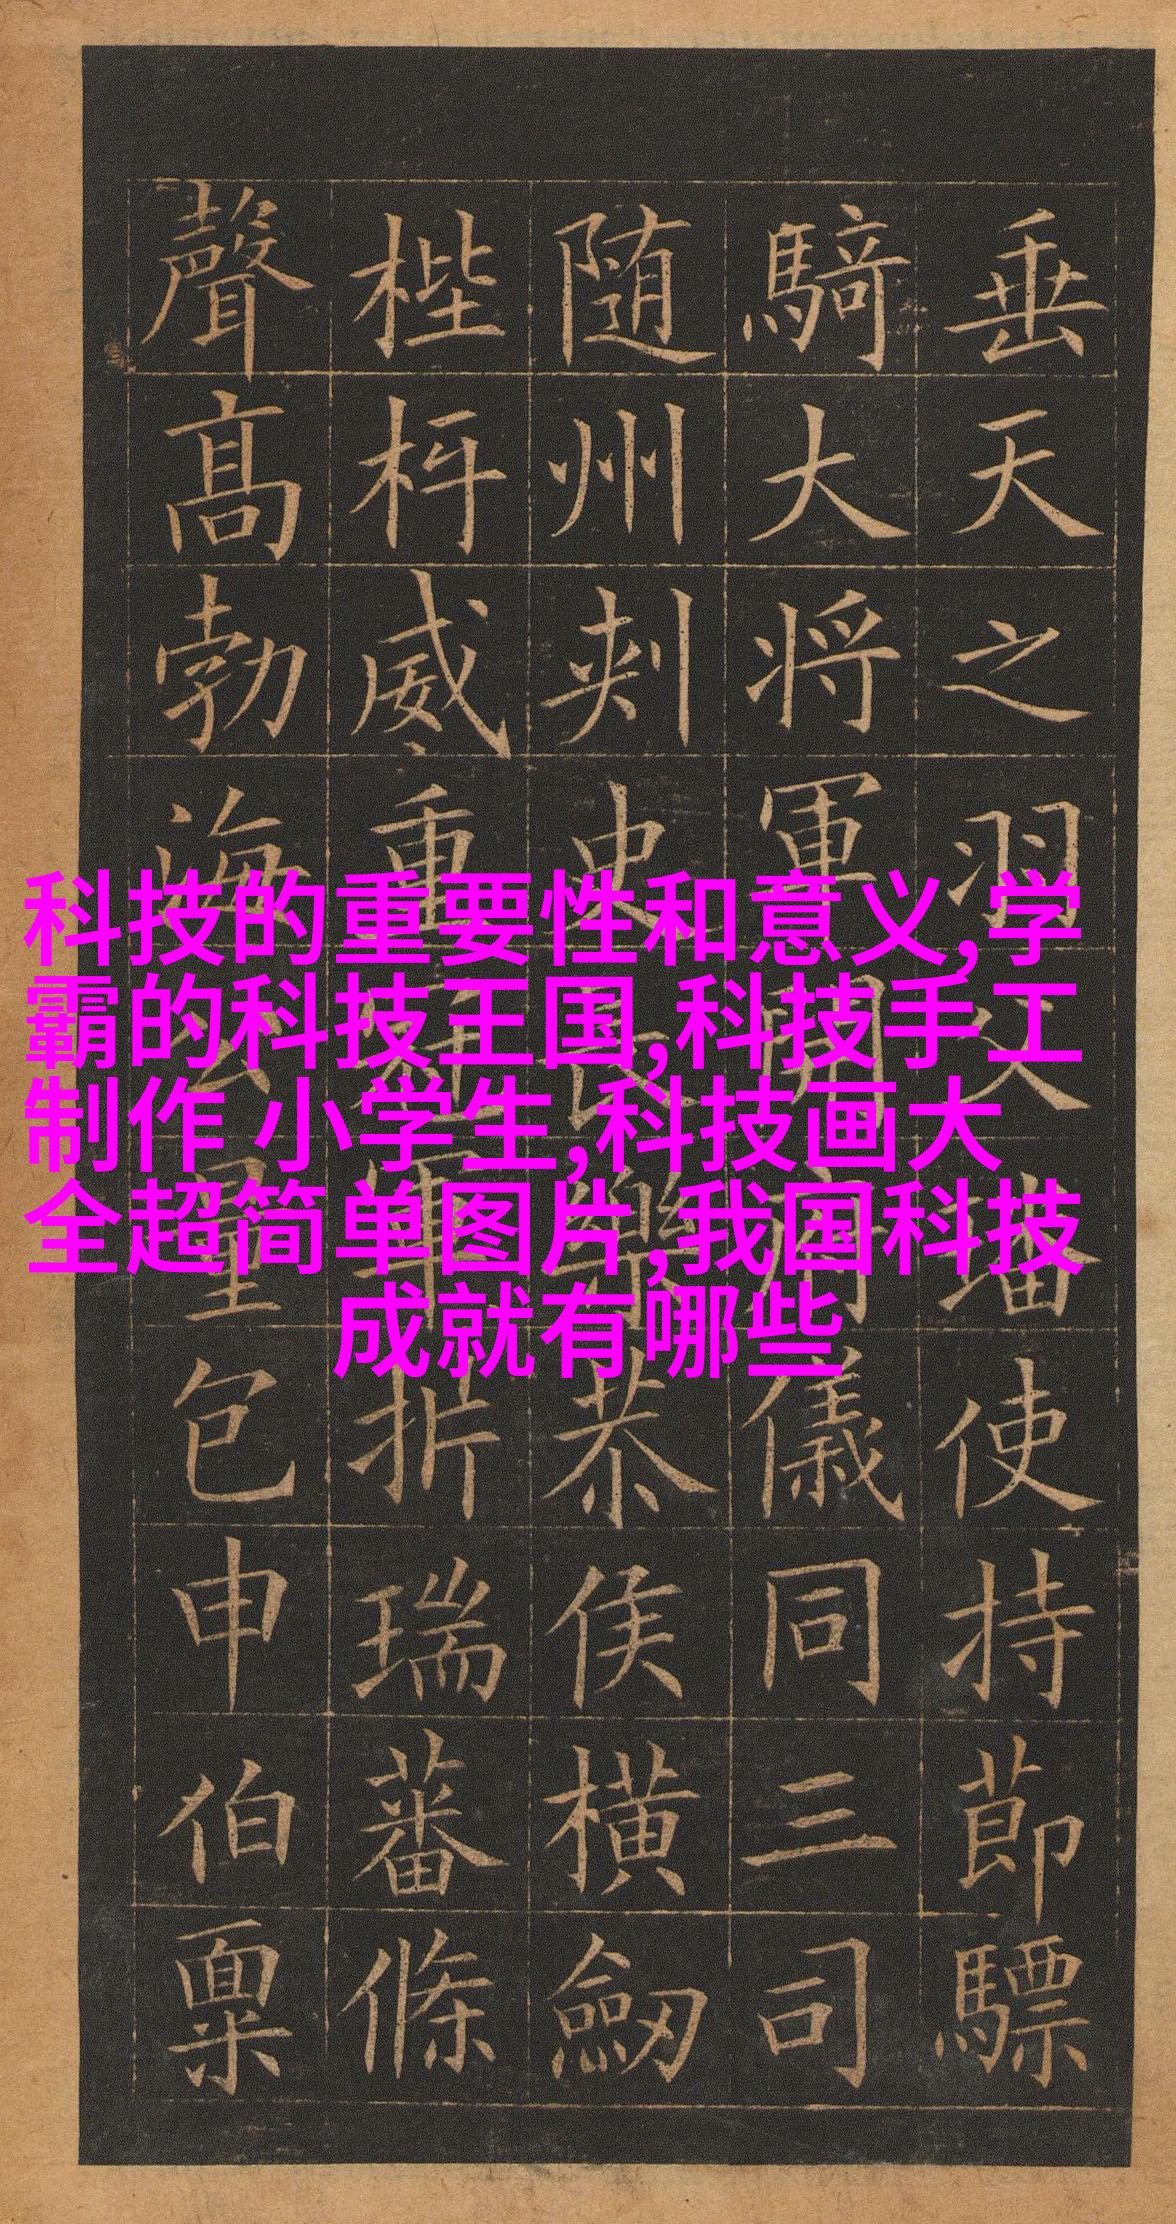 垂天之羽父璠使持節驃
騎大将軍開府儀同三司
随州刾史長樂恭侯横劒
梐枑威重冠軍析瑞蕃條
聲髙勃海公量包申伯稟
科技的重要性和意义,学
霸的科技王国,科技手工
制作 小学生,科技画大
全超简单图片,我国科技
成就有哪些